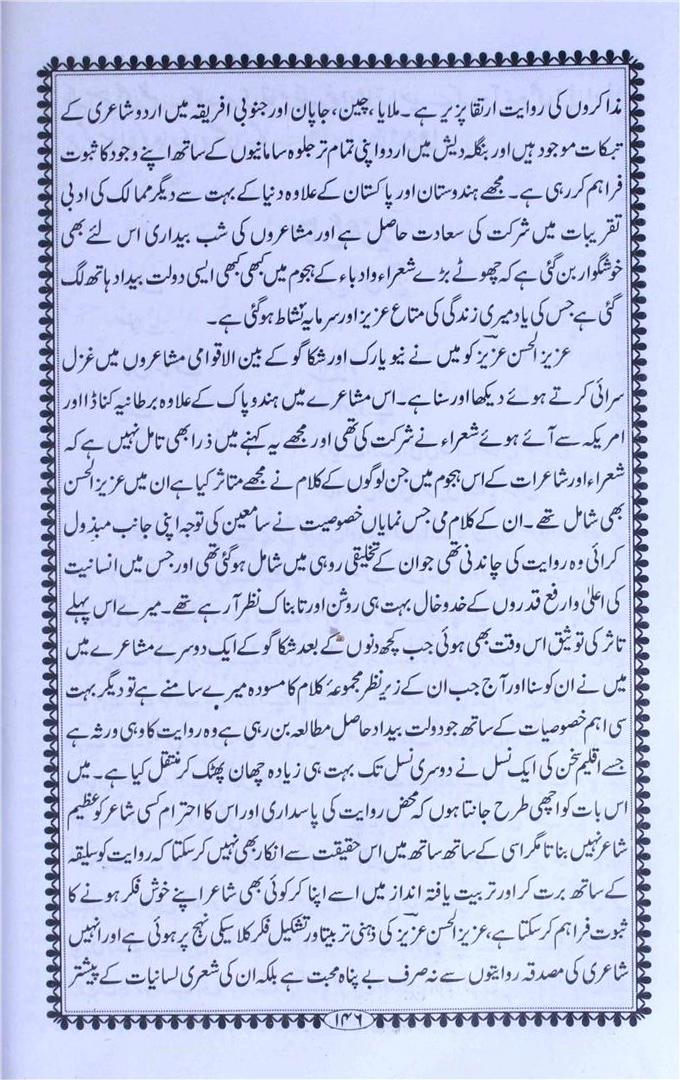 مذاکروں کی روایت ارتقا پزیر ہے۔ ملایا، چین، جاپان اور جنوبی افریقہ میں اردو شاعری کے
تبکات موجود ہیں اور بنگلہ دیش میں اردو اپنی تمام تر جلوہ سامانیوں کے ساتھ اپنے وجود کا ثبوت
فراہم کر رہی ہے۔ مجھے ہندوستان اور پاکستان کے علاوہ دنیا کے بہت سے دیگر ممالک کی ادبی
تقریبات میں شرکت کی سعادت حاصل ہے اور مشاعروں کی شب بیداری اس لئے بھی
خوشگوار بن گئی ہے کہ چھوٹے بڑے شعراء و ادباء کے ہجوم میں کبھی کبھی ایسی دولت بیداد ہاتھ لگ
گئی ہے جس کی یاد میری زندگی کی متاع عزیز اور سرمایہ نشاط ہو گئی ہے۔
عزیز الحسن عزیزؔ کو میں نے نیو یارک اور شکاگو کے بین الاقوامی مشاعروں میں غزل
سرائی کرتے ہوئے دیکھا اور سنا ہے۔ اس مشاعرے میں ہند و پاک کے علاوہ برطانیہ کناڈا اور
امریکہ سے آئے ہوئے شعراء نے شرکت کی تھی اور مجھے یہ کہنے میں ذرا بھی تامل نہیں ہے کہ
شعراء اور شاعرات کے اس ہجوم میں جن لوگوں کے کلام نے مجھے متاثر کیا ہے ان میں عزیز الحسن
بھی شامل تھے۔ ان کے کلام می جس نمایاں خصوصیت نے سامعین کی توجہ اپنی جانب مبذول
کرائی وہ روایت کی چاندنی تھی جو ان کے تخلیقی روہی میں شامل ہو گئی تھی اور جس میں انسانیت
کی اعلیٰ و ارفع قدروں کے خدوخال بہت ہی روشن اور تابناک نظر آ رہے تھے۔ میرے اس پہلے
تاثر کی توثیق اس وقت بھی ہوئی جب کچھ دنوں کے بعد شکاگو کے ایک دوسرے مشاعرے میں
میں نے ان کو سنا اور آج جب ان کے زیر نظر مجموعۂ کلام کا مسودہ میرے سامنے ہے تو دیگر بہت
سی اہم خصوصیات کے ساتھ جو دولت بیداد حاصل مطالعہ بن رہی ہے وہ روایت کا وہی ورثہ ہے
جسے اقلیم سخن کی ایک نسل نے دوسری نسل تک بہت ہی زیادہ چھان پھٹک کر منتقل کیا ہے۔ میں
اس بات کو اچھی طرح جانتا ہوں کہ محض روایت کی پاسداری اور اس کا احترام کسی شاعر کو عظیم
شاعر نہیں بناتا مگر اسی کے ساتھ ساتھ میں اس حقیقت سے انکار بھی نہیں کر سکتا کہ روایت کو سلیقہ
کے ساتھ برت کر اور تربیت یافتہ انداز میں اسے اپنا کر کوئی بھی شاعر اپنے خوش فکر ہونے کا
ثبوت فراہم کر سکتا ہے، عزیز الحسن عزیزؔ کی ذہنی تربیتاور تشکیل فکر کلاسیکی نہج پر ہوئی ہے اور انہیں
شاعری کی مصدقہ روایتوں سے نہ صرف بے پناہ محبت ہے بلکہ ان کی شعری لسانیات کے پیشتر
۱۴۶